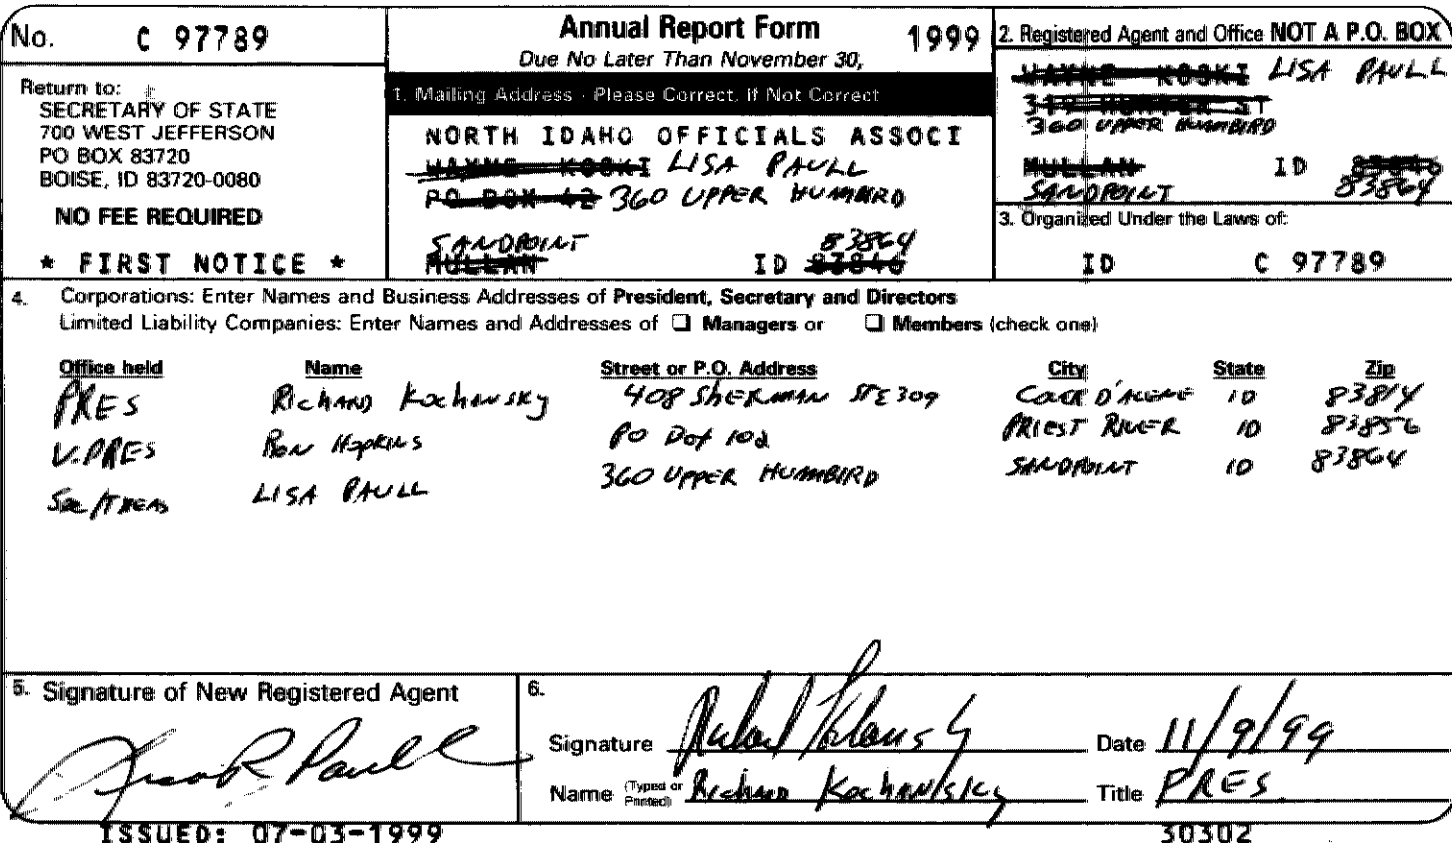 No. C 97789
Return to:
SECRETARY OF STATE
700 WEST JEFFERSON
PO BOX 83720
BOISE, ID 83720-0080
NO FEE REQUIRED
* FIRST NOTICE *
Annual Report Form 1999
Due No Later Than November 30,
1. Mailing Address - Please Correct, If Not Correct
NORTH IDAHO OFFICIALS ASSOCI
WAYNE KOSKI LISA PAULL
PO BOX 42 360 UPPER HUMBIRD
SANDPOINT 83864
MULLAN ID 83846
2. Registered Agent and Office NOT A P.O. BOX
WAYNE KOSKI LISA PAULL
ST
360 UPPER HUMBIRD
MULLAN ID 83846
SANDPOINT 83864
3. Organized Under the Laws of:
ID C 97789
4. Corporations: Enter Names and Business Addresses of President, Secretary and Directors
Limited Liability Companies: Enter Names and Addresses of ☐ Managers or ☐ Members (check one)
Office held Name Street or P.O. Address City State Zip
PRES Richard Kochansky 408 SHERMAN STE 309 COEUR D'ALENE ID 83814
V.PRES Ron Hopkins PO Box 102 PRIEST RIVER ID 83856
Sec/TREAS LISA PAULL 360 UPPER HUMBIRD SANDPOINT ID 83864
5. Signature of New Registered Agent
Lisa R Paull
6.
Signature Richard Kochansky Date 11/9/99
Name (Typed or Printed) Richard Kochansky Title PRES.
ISSUED: 07-03-1999 30302